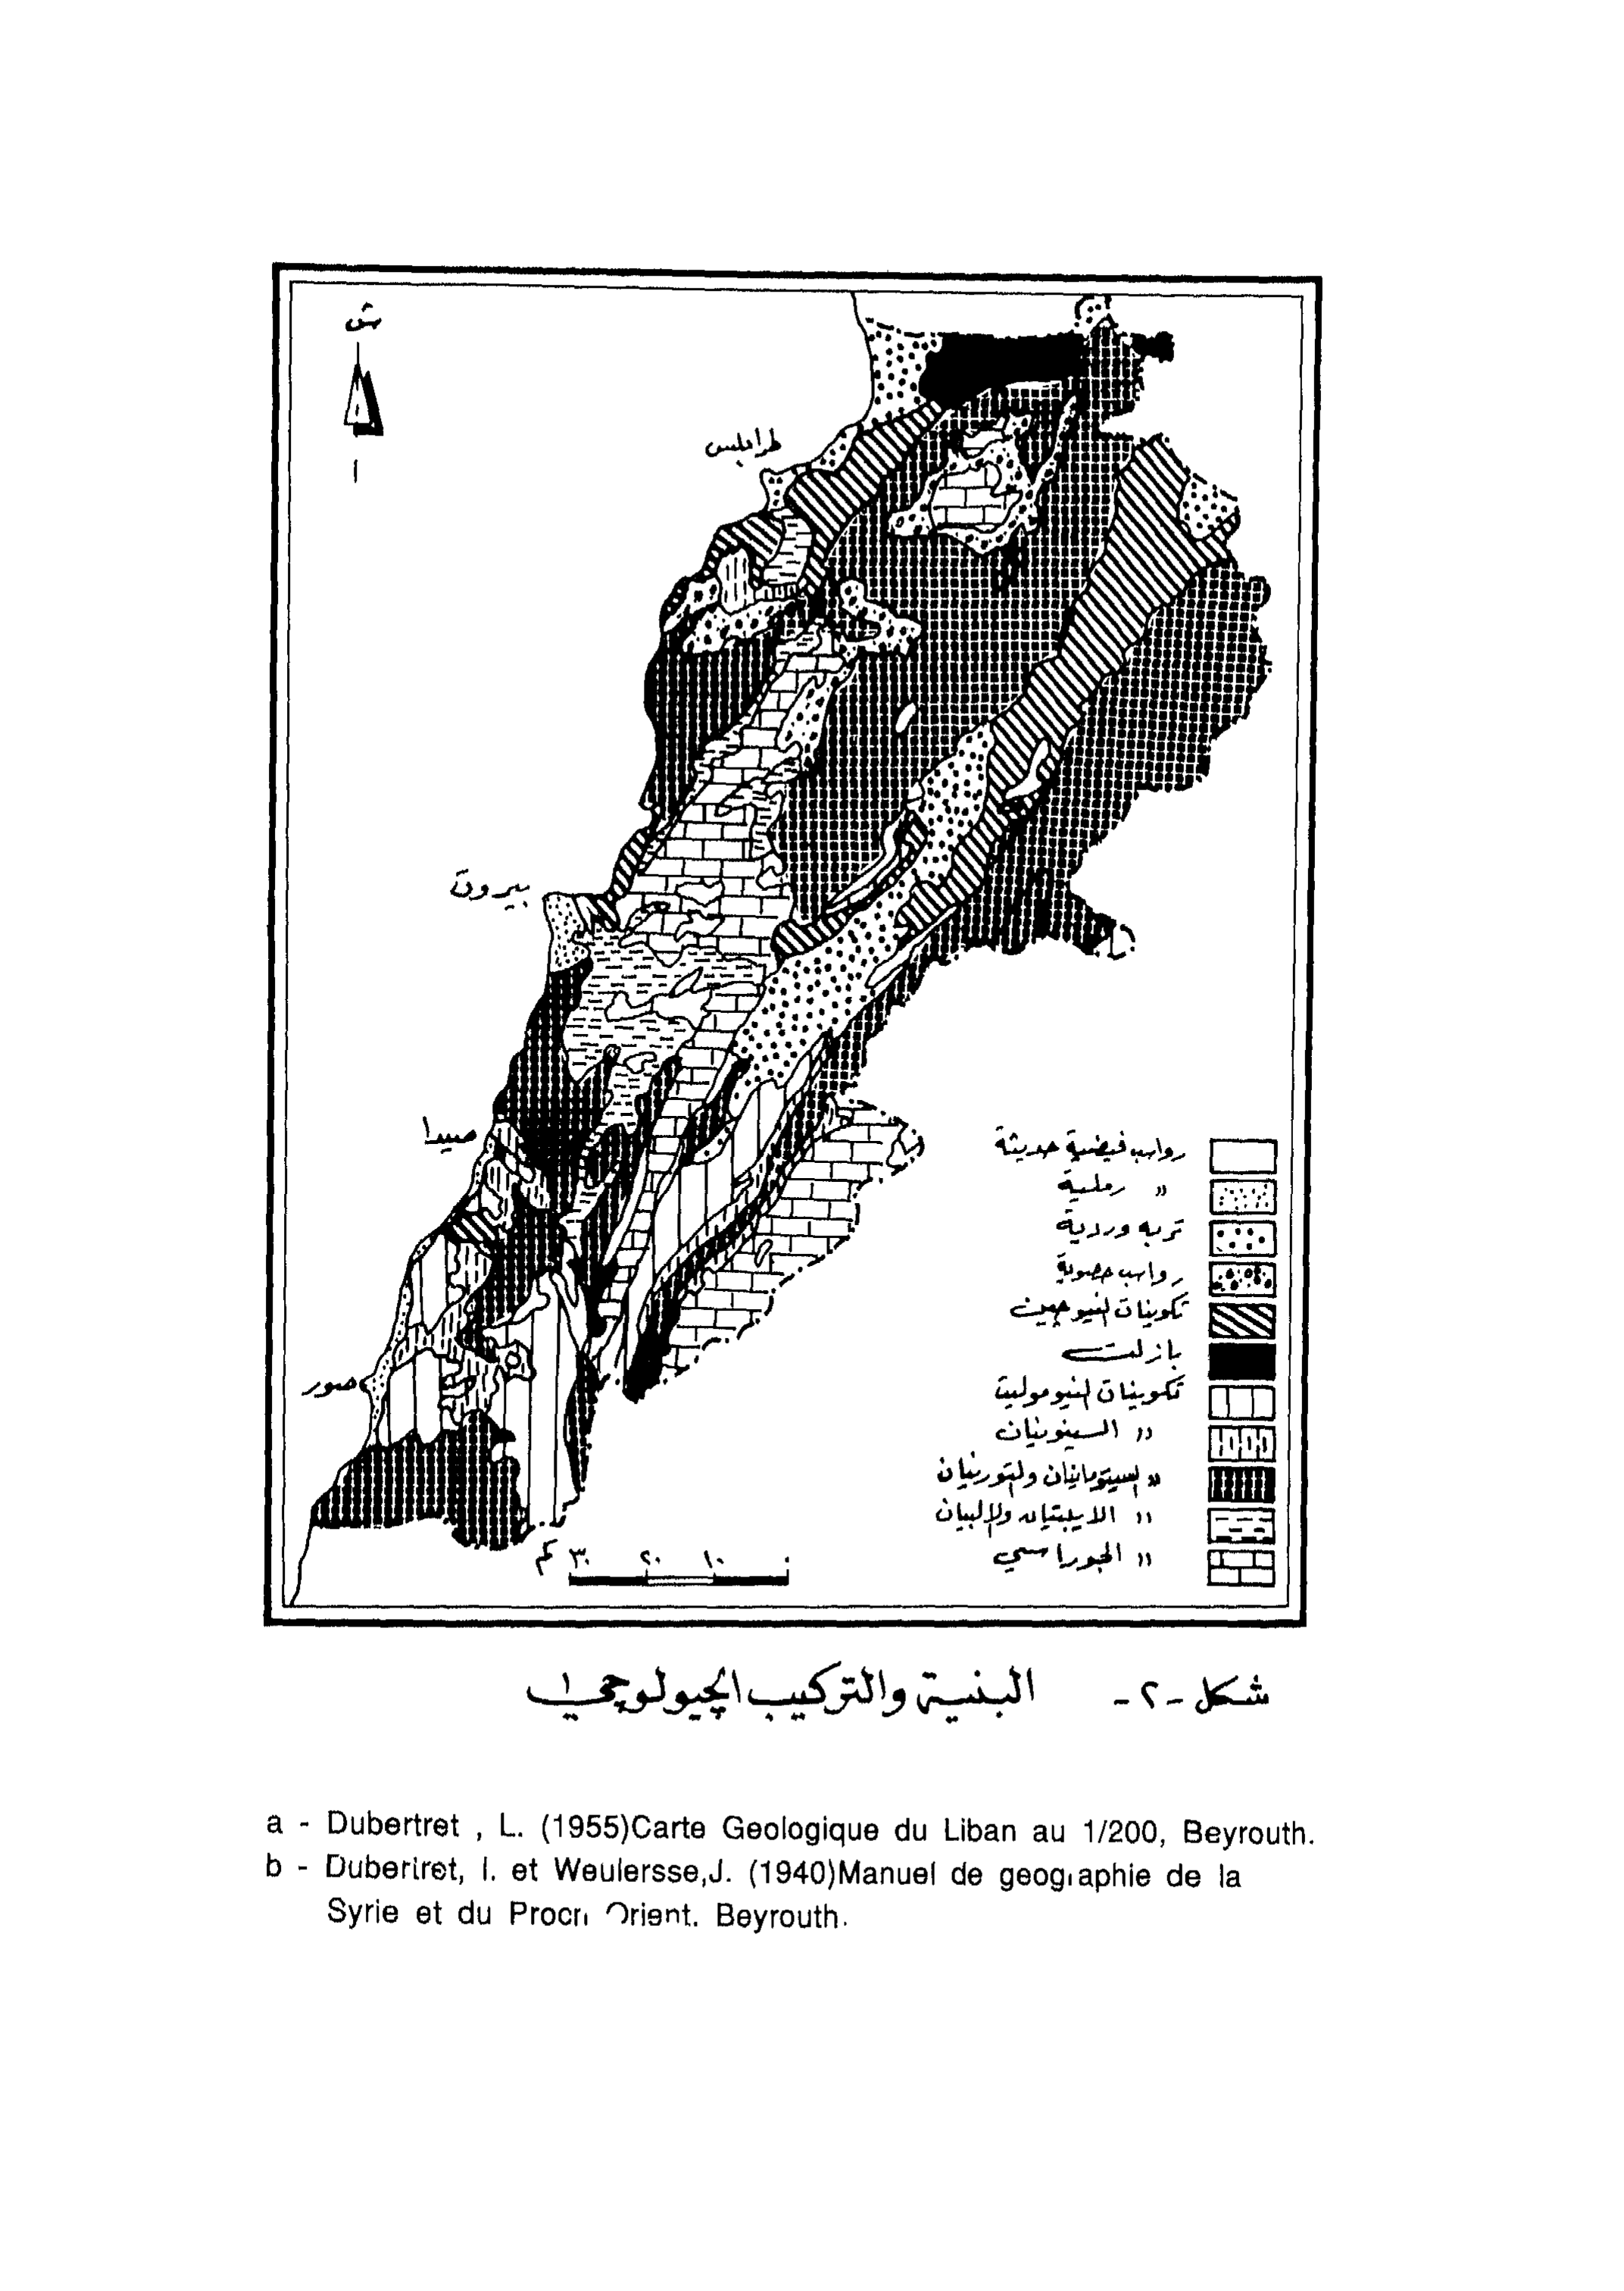 ش
طرابلس
بيروت
صيدا
صور
رواسب فيضية حديثة
" رملية
تربه وردية
رواسب حصوية
تكوينات النيوجين
بازلت
تكوينات النيوموليت
" السينونيان
" السينومانيان والتورنيان
" الايبتيان والالبيان
" الجوراسي
كم ٣٠ ٢٠ ١٠ ٠
شكل -٢- البنية والتركيب الجيولوجي
a - Dubertret , L. (1955)Carte Geologique du Liban au 1/200, Beyrouth.
b - Dubertret, l. et Weulersse,J. (1940)Manuel de geographie de la
Syrie et du Proch Orient. Beyrouth.